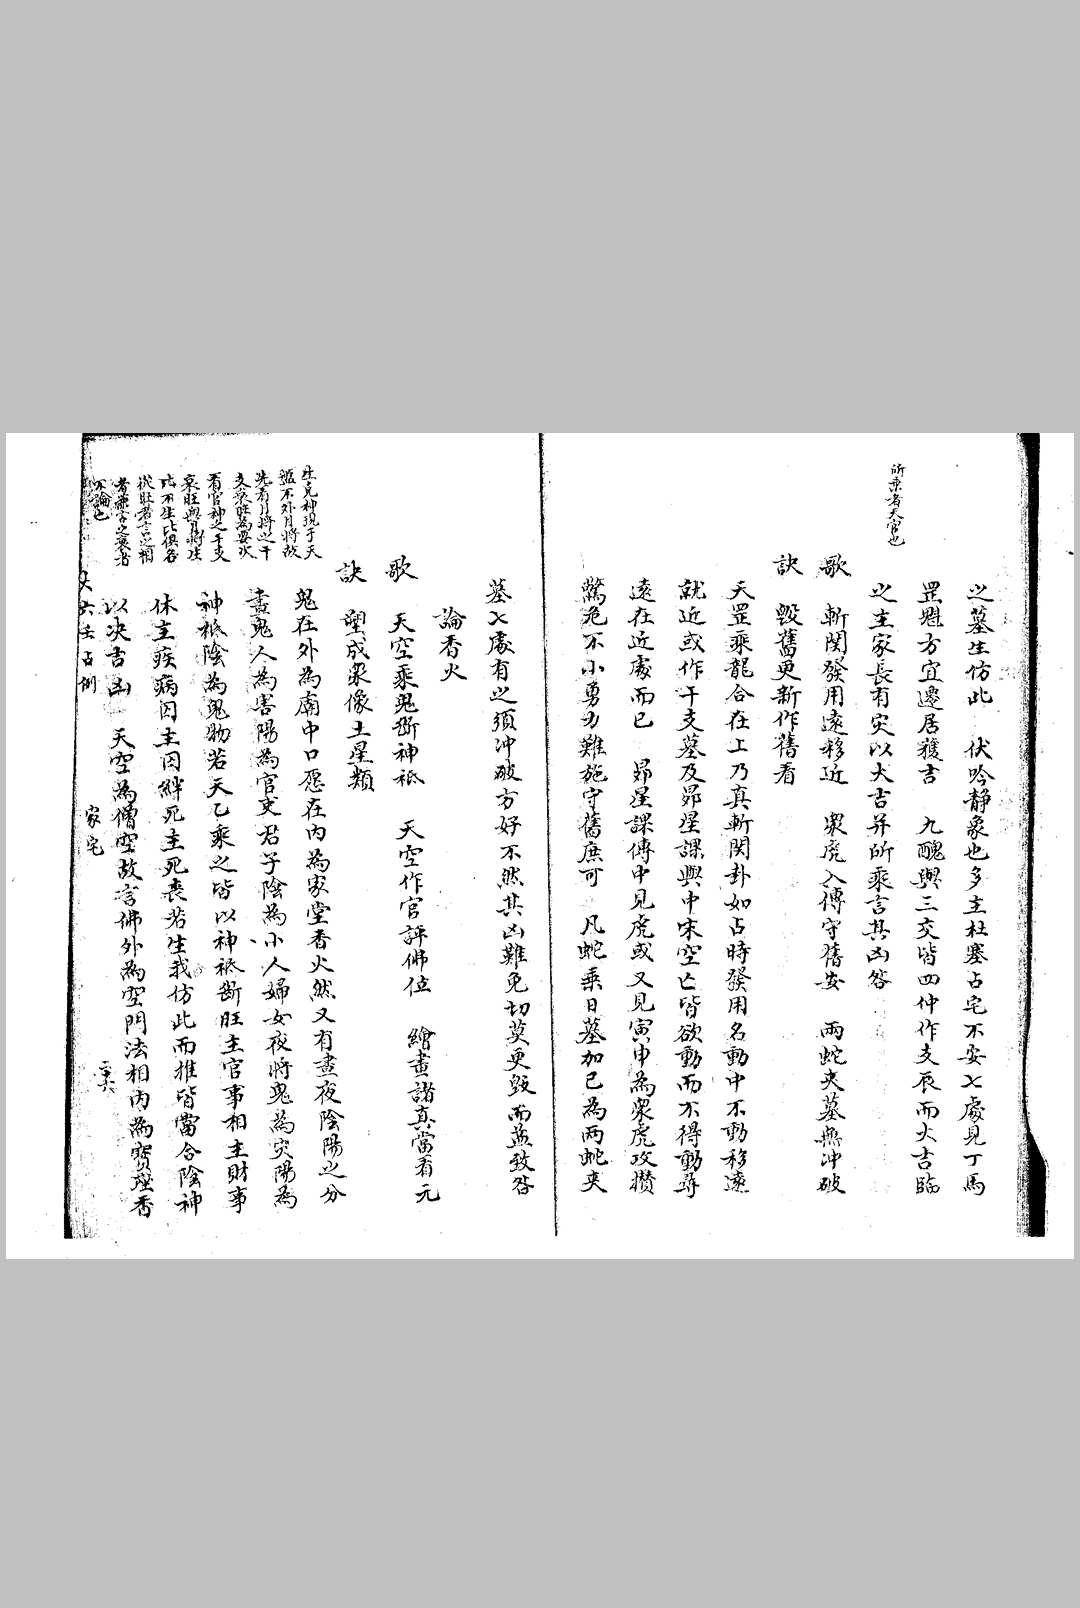 所乘者天官也
之墓生仿此　伏吟静象也多主杜塞占宅不安七處見丁馬
罡魁方宜遷居獲吉　九醜與三交皆四仲作支辰而大吉臨
之主家長有灾以大吉并所乘言其凶咎
歌　斬関發用遠移近　衆虎入傳守舊安　兩蛇夾墓無冲破
訣　毀舊更新作舊看
天罡乘龍合在上乃真斬関卦如占時發用名動中不動移遠
就近或作干支墓及昴星課與中末空亡皆欲動而不得動尋
遠在近處而已　昴星課傳中見虎或又見寅申為衆虎攻攢
驚危不小勇力難施守舊庶可　凡蛇乘日墓加巳為兩蛇夾
墓七處有之須冲破方好不然其凶難免切莫更毀而益致咎
論香火
歌　天空乘鬼斷神祇　天空作官評佛位　繪畫諸真當看元
訣　塑成衆像土星類
鬼在外為廟中口愿在內為家堂香火然又有晝夜陰陽之分
晝鬼人為害陽為官吏君子陰為小人婦女夜將鬼為灾陽為
神祇陰為鬼物若天乙乘之皆以神祇斷旺主官事相主財事
休主疾病囚主囚絆死主死喪若生我仿此而推皆當合陰神
以决吉凶　天空為僧空故言佛外為空門法相內為寶座香
生見神現于天
盤不外月將故
先看月將之干
支衰旺為要次
看官神之干支
衰旺與月將生
比不生比俱各
從旺者言之相
者兼言之衰者
不論也
大六壬占例
家宅
二十六